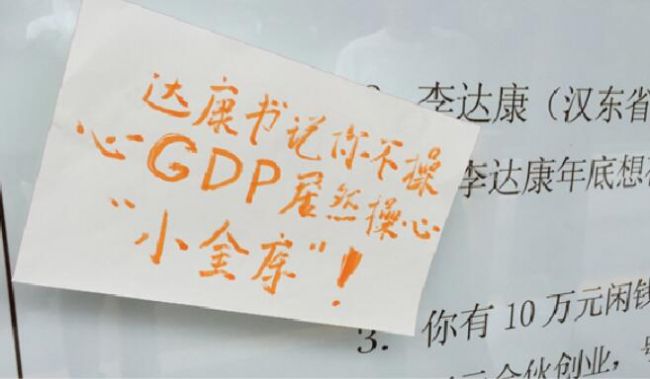 达康书记你不操
心GDP居然操心
“小金库”！
李达康（汉东省
李达康年底想
3. 你有10万元闲钱
合伙创业，